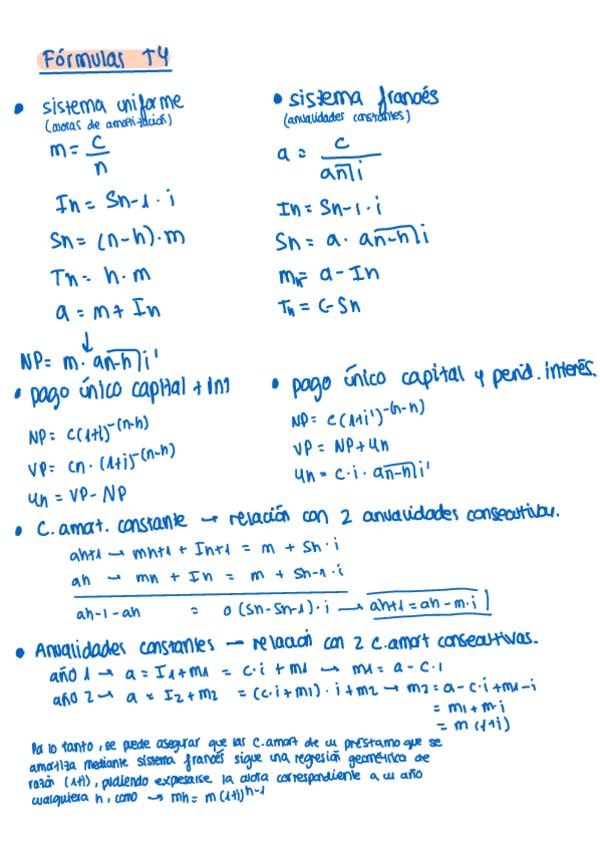 Fórmulas T4
• sistema uniforme
(cuotas de amortización)
m = C/n
In = Sn-1 · i
Sn = (n-h) · m
Tn = h · m
a = m + In
↓
NP = m · an-h⌉i'
• sistema francés
(anualidades constantes)
a = C/an⌉i
In = Sn-1 · i
Sn = a · an-h⌉i
mn = a - In
Tn = C - Sn
• pago único capital + int
NP = C(1+i)^-(n-h)
VP = Cn · (1+i)^-(n-h)
Un = VP - NP
• pago único capital y periód. interés.
NP = C(1+i')^-(n-h)
VP = NP + Un
Un = C · i · an-h⌉i'
• C. amort. constante → relación con 2 anualidades consecutivas.
ah+1 → mh+1 + Ih+1 = m + Sh · i
ah → mh + Ih = m + Sh-1 · i
ah-1-ah = 0 (Sh-Sh-1) · i → ah+1 = ah - m · i
• Anualidades constantes → relación con 2 C. amort consecutivas.
año 1 → a = I1 + m1 = C · i + m1 → m1 = a - C · i
año 2 → a = I2 + m2 = (C · i + m1) · i + m2 → m2 = a - C · i + m1 - i
= m1 + m · i
= m (1+i)
Por lo tanto, se puede asegurar que las C. amort de un préstamo que se
amortiza mediante sistema francés sigue una regresión geométrica de
razón (1+i), pudiendo expresarse la cuota correspondiente a un año
cualquiera h, como → mh = m (1+i)^h-1